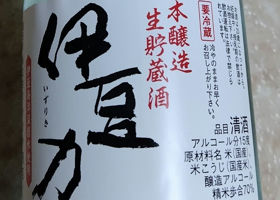 本醸造
生貯蔵酒
伊豆力
いずりき
要冷蔵
冷やのままお早く
お召し上り下さい。
品目 清酒
アルコール分15度
原材料名 米(国産)、
米こうじ(国産米)、
醸造アルコール
精米歩合70%